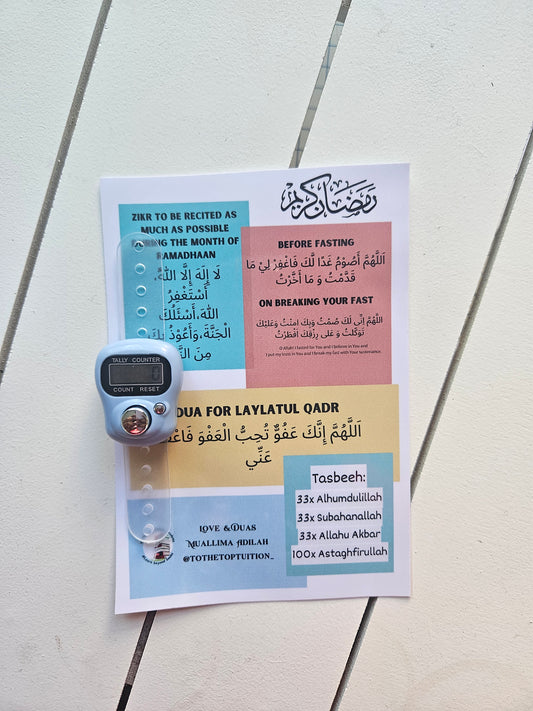 رمضان كريم
ZIKR TO BE RECITED AS
MUCH AS POSSIBLE
DURING THE MONTH OF
RAMADHAAN
لَا إِلَهَ إِلَّا اللهُ،
أَسْتَغْفِرُ
اللهَ،أَسْئَلُكَ
الْجَنَّةَ،وَأَعُوْذُ بِكَ
مِنَ
BEFORE FASTING
اَللّٰهُمَّ أَصُوْمُ غَدًا لَّكَ فَاغْفِرْ لِيْ مَا
قَدَّمْتُ وَ مَا أَخَّرْتُ
ON BREAKING YOUR FAST
اَللّٰهُمَّ اِنِّى لَكَ صُمْتُ وَبِكَ اٰمَنْتُ وَعَلَيْكَ
تَوَكَّلْتُ وَ عَلٰى رِزْقِكَ اَفْطَرْتُ
O Allah! I fasted for You and I believe in You and
I put my trust in You and I break my fast with Your sustenance.
TALLY COUNTER
COUNT RESET
DUA FOR LAYLATUL QADR
اَللّٰهُمَّ إِنَّكَ عَفُوٌّ تُحِبُّ الْعَفْوَ
عَنِّي
Tasbeeh:
33x Alhumdulillah
33x Subahanallah
33x Allahu Akbar
100x Astaghfirullah
LOVE & DUAS
MUALLIMA ADILAH
@TOTHETOPTUITION_